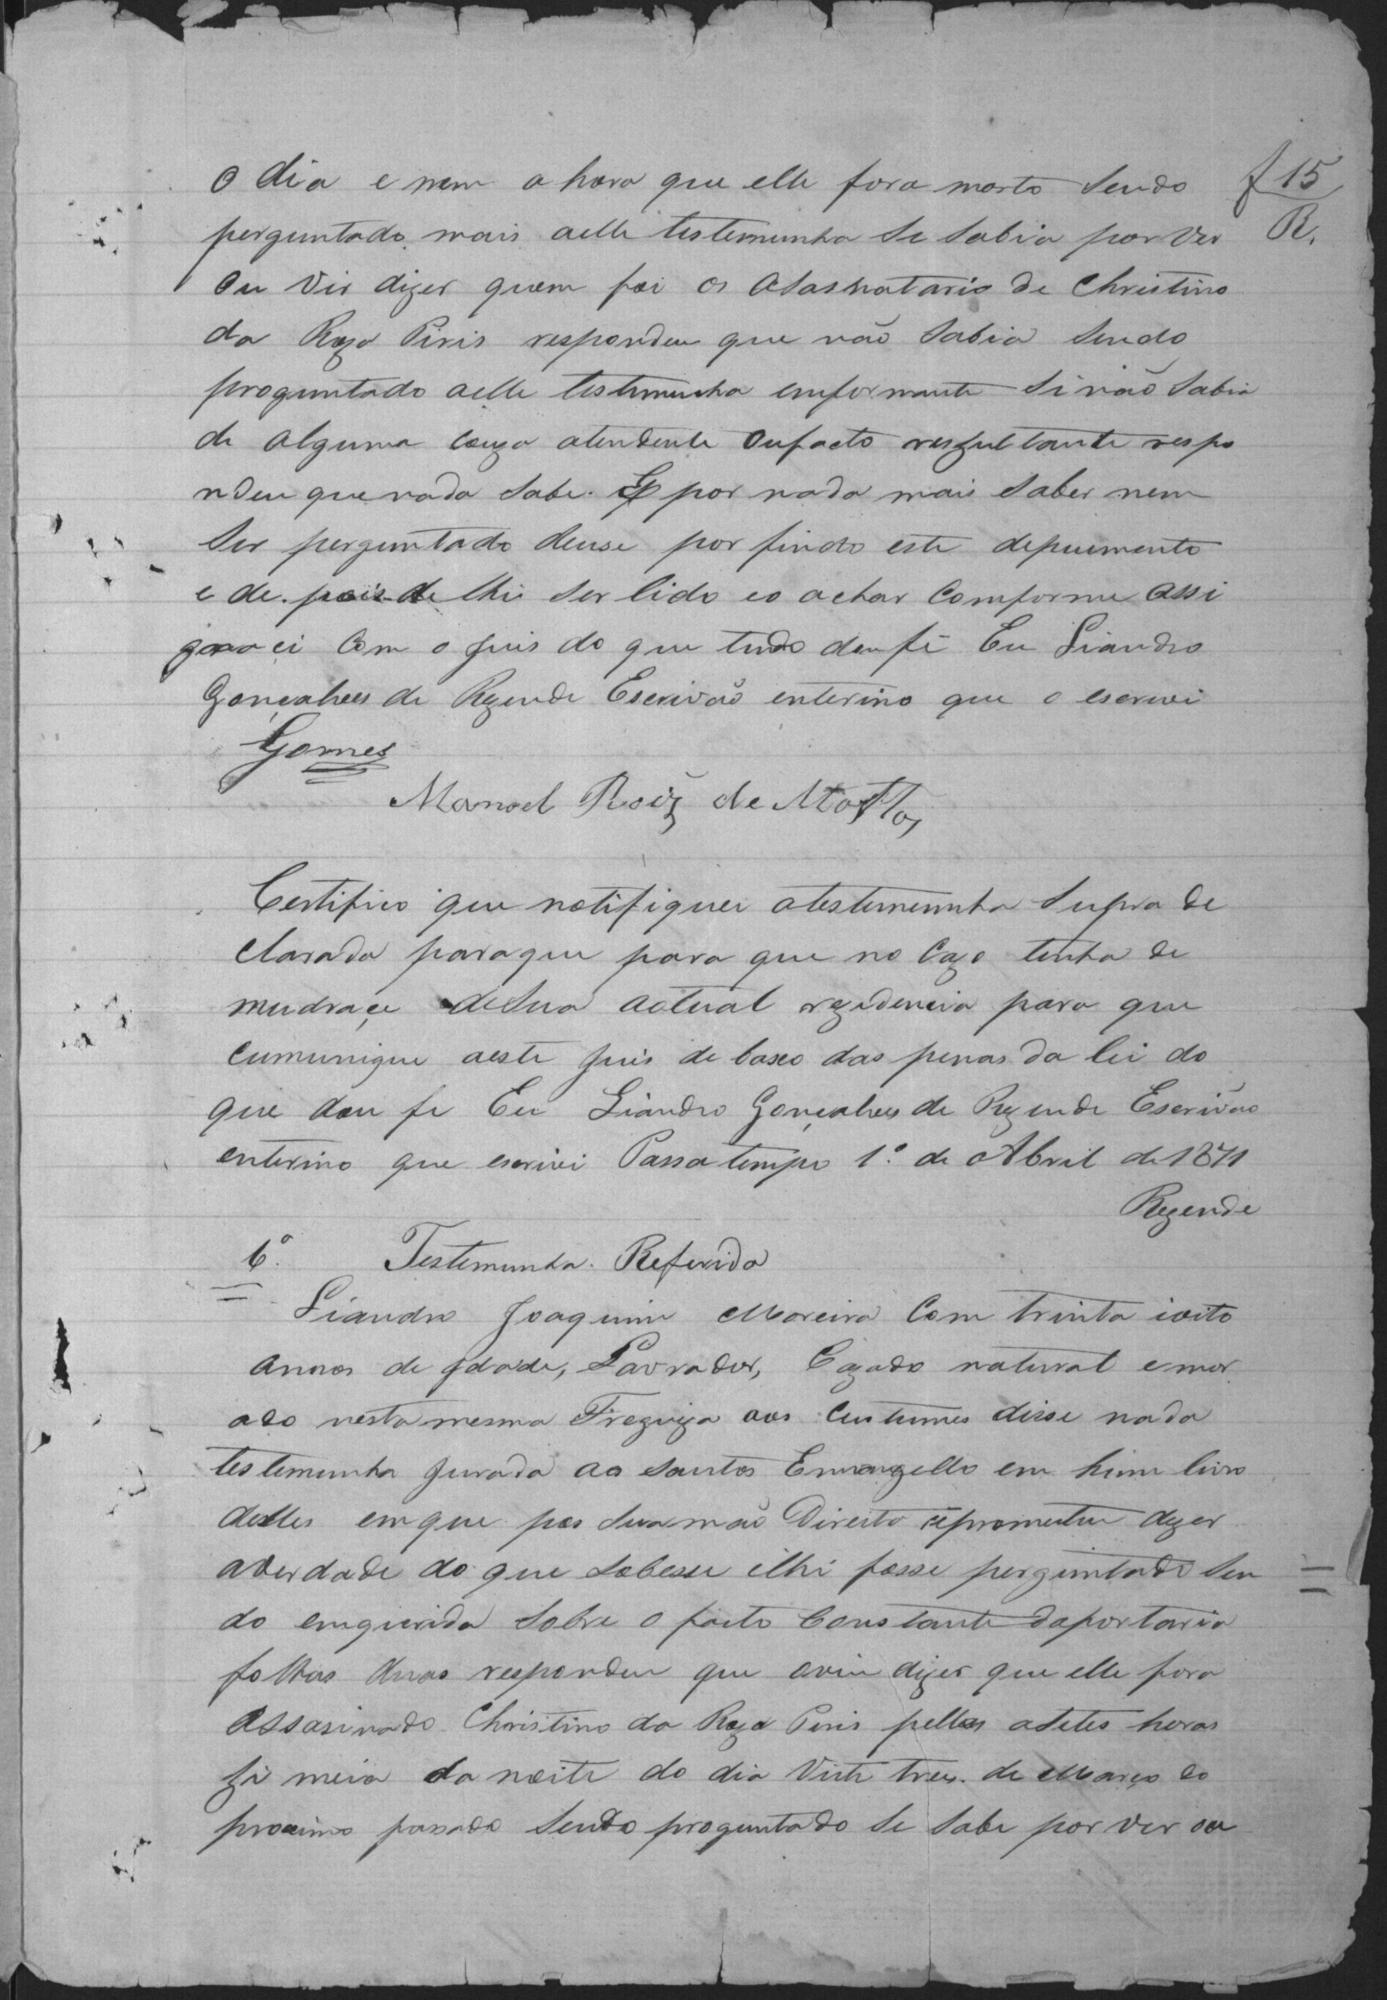 f 15
R.
o dia e nem a hora que elle fora morto sendo
perguntado mais aelle testemunha se sabia por ver
ou vir dizer quem foi os asasnatario de Christino
da Roza Piris respondeu que não sabia sendo
proguntado aelle testemunha emformante si não sabia
de alguma couza atendente oufacto rezultante respo
ndeu que nada sabe. E por nada mais saber nem
ser perguntado deuse por findo este depuemento
e de pois de lhi ser lido eo achar comforme assi
gnaci com o juis do que tudo dou fé Eu Liandro
Gonçalves de Rezende Escrivão enterino que o escrevi
Gomes
Manoel Roiz de Mattos
Certifico que notifiquei atestemunha supra de
clarada paraque para que no cazo tenha de
mudraçe desua actual rezidencia para que
cumunique aeste juis de baxo das penas da lei do
que dou fe Eu Liandro Gonçalves de Rezende Escrivão
enterino que escrivi Passa tempo 1º de Abril de 1871
Rezende
6º Testemunha Referida
Liandro Joaquim Moreira com trinta ioito
annos de idade, Lavrador, Cazado natural e mor
ado nesta mesma Freguiza aos custumes disse nada
testemunha jurada ao santos Envangello em hum livro
delles emque pos suamão Direito epromuteu dizer
averdade do que sobesse ilhi fosse perguntado sen
do enquirida sobre o facto Constante daportaria
folhas duas respondeu que oviu dizer que elle fora
assasinado Christino da Roza Piris pellas asetes horas
zi meia da noite do dia vinte tres de Março do
proximo passado sendo proguntado se sabe por ver ou